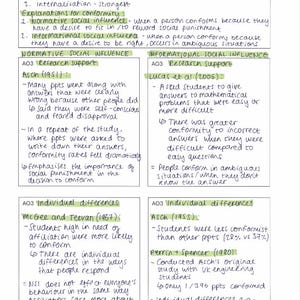 2. Internalisation - strongest
Explanations for conformity:
1. Normative social influence - when a person conforms because they
have a desire to fit in / to reward social punishment
2. Informational social influence - when a person conforms because
they have a desire to be right. Occurs in ambiguous situations
NORMATIVE SOCIAL INFLUENCE
AO3 Research support
Asch (1951):
- Many ppts went along
with answers that were clearly
wrong because other people did
↳ said they were self-conscious
and feared disapproval
- In a repeat of the study,
where ppts were asked to
write down their answers,
conformity rates fell dramatically
- Emphasises the importance of
social punishment in the
decision to conform
INFORMATIONAL SOCIAL INFLUENCE
AO3 Research support
Lucas et al (2006):
- Asked students to give
answers to mathematical
problems that were easy or
more difficult
↳ There was greater
conformity to incorrect
answers when they were
difficult compared to
easy questions
- People conform in ambiguous
situations/when they don't
know the answer
AO3 Individual differences
McGee and Teevan (1967):
- Students high in need of
affiliation were more likely
to conform
↳ There are individual
differences in the ways
that people respond
∴ NSI does not affect everyone's
behaviour in the same way
AO3 Individual differences
Asch (1955):
- Students were less conformist
than other ppts (28% vs 37%)
Perrin + Spencer (1980):
- Conducted Asch's original
study with UK engineering
students
↳ Only 1/396 ppts conformed